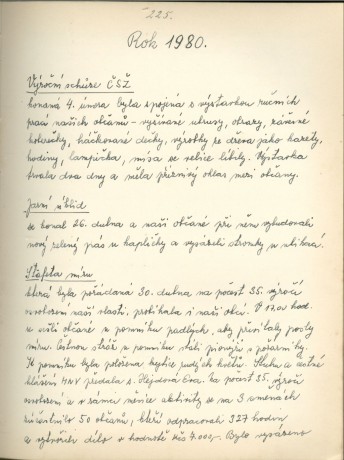 225.
Rok 1980.
Výroční schůze ČSŽ
konaná 4. února byla spojena s výstavkou ručních
prací našich občanů - vyšívané ubrusy, obrazy, závěsné
kolečky, háčkované dečky, výrobky ze dřeva jako kazety,
hodiny, lampička, mísa se velice líbily. Výstavka
trvala dva dny a měla příznivý ohlas mezi občany.
Jarní úklid
se konal 26. dubna a naši občané při něm vybudovali
nový zelený pás u kapličky a vysázeli stromky
Štafeta míru
která byla pořádána 30. dubna na počest 35. výročí
osvobození naší vlasti, probíhala i naší obcí. V hod.
se sešli občané u pomníku padlých, aby přivítali posly
míru. Čestnou stráž u pomníku stáli pionýři s požárníky.
K pomníku byla položena kytice rudých květů. Stuhu a čestné
hlášení MNV předala s. Hejdová Eva. Na počest 35. výročí
osvobození a v rámci měsíce aktivity se na 3 směnách
zúčastnilo 50 občanů, kteří odpracovali 327 hodin
a vytvořili dílo v hodnotě Kčs 4.000,-. Bylo vyváženo